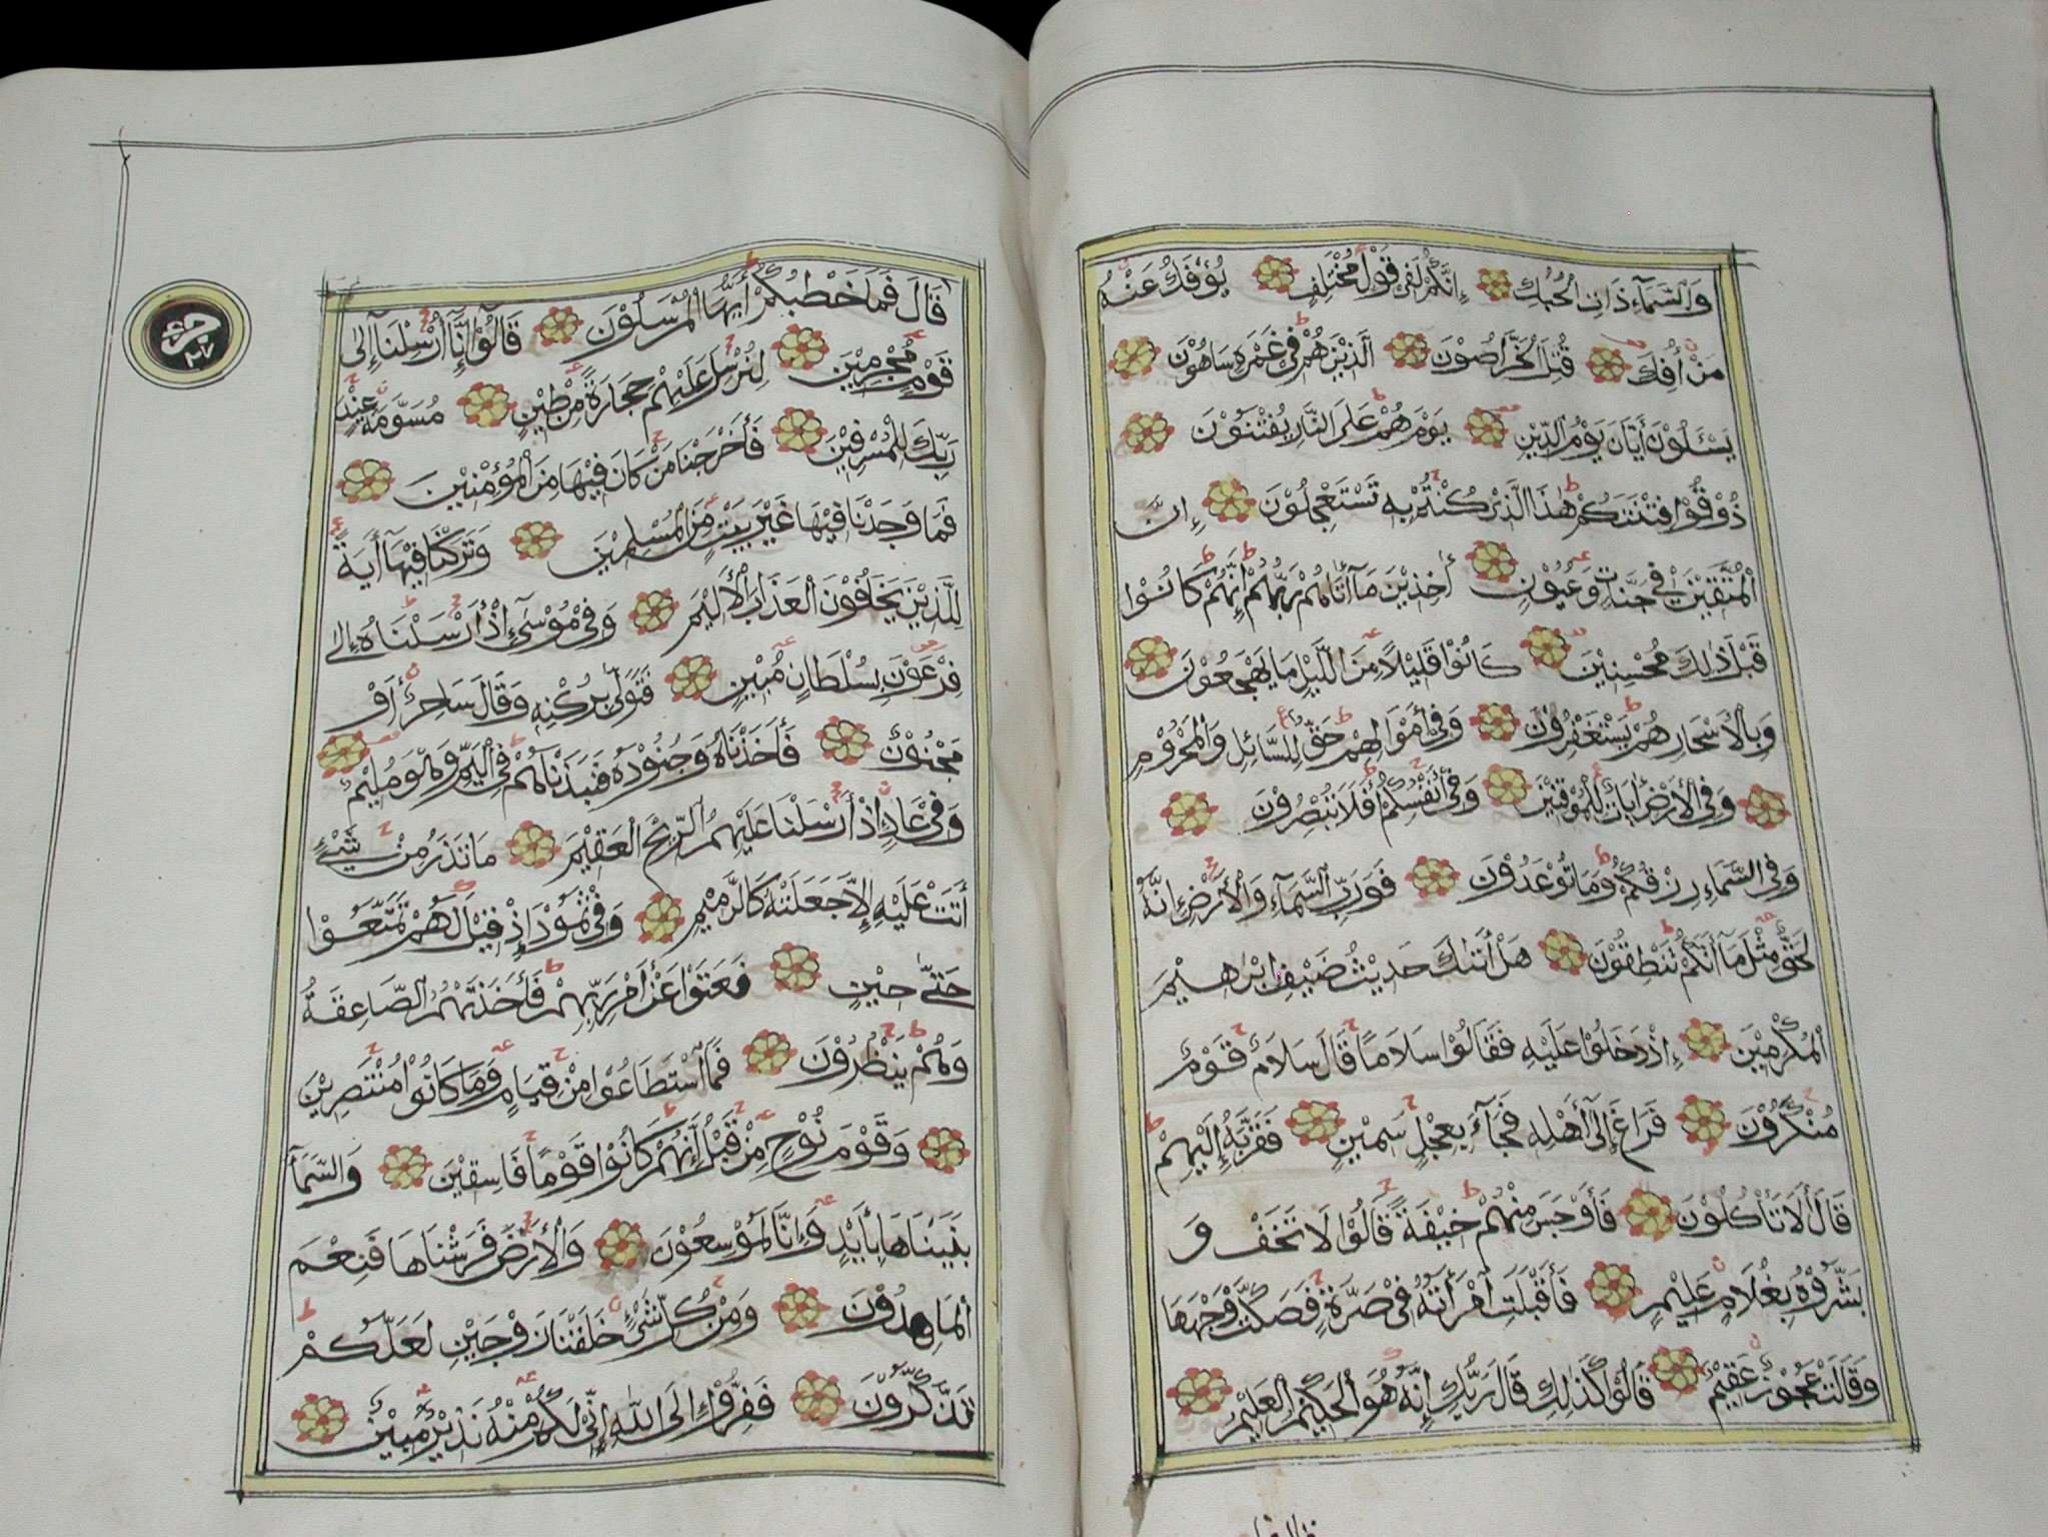 وَالسَّمَآءِ ذَاتِ الْحُبُكِ إِنَّكُمْ لَفِي قَوْلٍ مُخْتَلِفٍ يُؤْفَكُ عَنْهُ
مَنْ أُفِكَ قُتِلَ الْخَرَّاصُوْنَ الَّذِيْنَ هُمْ فِي غَمْرَةٍ سَاهُوْنَ
يَسْئَلُوْنَ أَيَّانَ يَوْمُ الدِّيْنِ يَوْمَ هُمْ عَلَى النَّارِ يُفْتَنُوْنَ
ذُوْقُوْا فِتْنَتَكُمْ هٰذَا الَّذِيْ كُنْتُمْ بِهِ تَسْتَعْجِلُوْنَ إِنَّ
الْمُتَّقِيْنَ فِي جَنَّاتٍ وَعُيُوْنٍ أٰخِذِيْنَ مَآ أٰتَاهُمْ رَبُّهُمْ إِنَّهُمْ كَانُوْا
قَبْلَ ذٰلِكَ مُحْسِنِيْنَ كَانُوْا قَلِيْلًا مِنَ اللَّيْلِ مَا يَهْجَعُوْنَ
وَبِالْأَسْحَارِ هُمْ يَسْتَغْفِرُوْنَ وَفِي أَمْوَالِهِمْ حَقٌّ لِلسَّائِلِ وَالْمَحْرُوْمِ
وَفِي الْأَرْضِ أٰيَاتٌ لِلْمُوْقِنِيْنَ وَفِيْ أَنْفُسِكُمْ أَفَلَا تُبْصِرُوْنَ
وَفِي السَّمَاءِ رِزْقُكُمْ وَمَا تُوْعَدُوْنَ فَوَرَبِّ السَّمَآءِ وَالْأَرْضِ إِنَّهُ
لَحَقٌّ مِثْلَ مَآ أَنَّكُمْ تَنْطِقُوْنَ هَلْ أَتٰىكَ حَدِيْثُ ضَيْفِ إِبْرٰهِيْمَ
الْمُكْرَمِيْنَ إِذْ دَخَلُوْا عَلَيْهِ فَقَالُوْا سَلَامًا قَالَ سَلَامٌ قَوْمٌ
مُنْكَرُوْنَ فَرَاغَ إِلَىٰٓ أَهْلِهِ فَجَآءَ بِعِجْلٍ سَمِيْنٍ فَقَرَّبَهُ إِلَيْهِمْ
قَالَ أَلَا تَأْكُلُوْنَ فَأَوْجَسَ مِنْهُمْ خِيْفَةً قَالُوْا لَا تَخَفْ وَ
بَشَّرُوْهُ بِغُلَامٍ عَلِيْمٍ فَأَقْبَلَتِ امْرَأَتُهُ فِيْ صَرَّةٍ فَصَكَّتْ وَجْهَهَا
وَقَالَتْ عَجُوْزٌ عَقِيْمٌ قَالُوْا كَذٰلِكِ قَالَ رَبُّكِ إِنَّهُ هُوَ الْحَكِيْمُ الْعَلِيْمُ
جزء
٢٧
قَالَ فَمَا خَطْبُكُمْ أَيُّهَا الْمُرْسَلُوْنَ قَالُوْٓا إِنَّآ أُرْسِلْنَآ إِلَىٰ
قَوْمٍ مُجْرِمِيْنَ لِنُرْسِلَ عَلَيْهِمْ حِجَارَةً مِنْ طِيْنٍ مُسَوَّمَةً عِنْدَ
رَبِّكَ لِلْمُسْرِفِيْنَ فَأَخْرَجْنَا مَنْ كَانَ فِيْهَا مِنَ الْمُؤْمِنِيْنَ
فَمَا وَجَدْنَا فِيْهَا غَيْرَ بَيْتٍ مِنَ الْمُسْلِمِيْنَ وَتَرَكْنَا فِيْهَآ أٰيَةً
لِلَّذِيْنَ يَخَافُوْنَ الْعَذَابَ الْأَلِيْمَ وَفِيْ مُوْسَىٰٓ إِذْ أَرْسَلْنَاهُ إِلَىٰ
فِرْعَوْنَ بِسُلْطَانٍ مُبِيْنٍ فَتَوَلّٰى بِرُكْنِهِ وَقَالَ سَاحِرٌ أَوْ
مَجْنُوْنٌ فَأَخَذْنَاهُ وَجُنُوْدَهُ فَنَبَذْنَاهُمْ فِي الْيَمِّ وَهُوَ مُلِيْمٌ
وَفِيْ عَادٍ إِذْ أَرْسَلْنَا عَلَيْهِمُ الرِّيْحَ الْعَقِيْمَ مَا تَذَرُ مِنْ شَيْءٍ
أَتَتْ عَلَيْهِ إِلَّا جَعَلَتْهُ كَالرَّمِيْمِ وَفِيْ ثَمُوْدَ إِذْ قِيْلَ لَهُمْ تَمَتَّعُوْا
حَتّٰى حِيْنٍ فَعَتَوْا عَنْ أَمْرِ رَبِّهِمْ فَأَخَذَتْهُمُ الصَّاعِقَةُ
وَهُمْ يَنْظُرُوْنَ فَمَا اسْتَطَاعُوْا مِنْ قِيَامٍ وَمَا كَانُوْا مُنْتَصِرِيْنَ
وَقَوْمَ نُوْحٍ مِنْ قَبْلُ إِنَّهُمْ كَانُوْا قَوْمًا فَاسِقِيْنَ وَالسَّمَآءَ
بَنَيْنَاهَا بِأَيْيْدٍ وَإِنَّا لَمُوْسِعُوْنَ وَالْأَرْضَ فَرَشْنَاهَا فَنِعْمَ
الْمَاهِدُوْنَ وَمِنْ كُلِّ شَيْءٍ خَلَقْنَا زَوْجَيْنِ لَعَلَّكُمْ
تَذَكَّرُوْنَ فَفِرُّوْٓا إِلَى اللّٰهِ إِنِّيْ لَكُمْ مِنْهُ نَذِيْرٌ مُبِيْنٌ